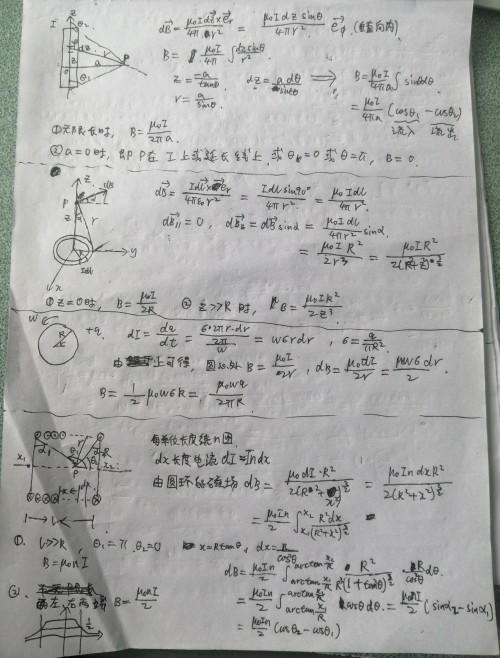 I
θ₂
dz
r
a
P
θ₁
dB⃗ = μ₀I dz⃗×e⃗r / 4π r² = μ₀I dz sinθ / 4π r² e⃗φ (垂直向内)
B = μ₀I/4π ∫ dz sinθ / r²
z = -a/tanθ dz = a dθ/sin²θ ⟹ B = μ₀I/4πa ∫ sinθdθ
r = a/sinθ
= μ₀I/4πa (cosθ₁ - cosθ₂)
流入 流出
① 无限长时, B = μ₀I/2πa
② a=0时, 即P在I上或延长线上, θ=0或θ=π, B=0.
z
dB
P
r
y
x
Idl
dB⃗ = Idl⃗×e⃗r / 4πε₀r² = Idl sin90° / 4πr² = μ₀Idl / 4πr²
dB⃗∥ = 0, dB⃗z = dB⃗ sinα = μ₀Idl/4πr² sinα
= μ₀IR²/2r³ = μ₀IR² / 2(R²+z²)^3/2
① z=0时, B = μ₀I/2R ② z>>R时, B = μ₀IR²/2z³
W
R
+q
dI = dq/dt = σ·2πr·dr / (2π/W) = Wσrdr, σ = q/πR²
由上可得, 圆心处 B = μ₀I/2r, dB = μ₀dI/2r = μ₀Wσdr/2
B = 1/2 μ₀WσR = μ₀Wq/2πR
每单位长度绕n圈
dx长度电流dI = Indx
由圆环的磁场 dB = μ₀dI·R² / 2(R²+x²)^3/2 = μ₀IndxR² / 2(R²+x²)^3/2
= μ₀In/2 ∫x₁^x₂ R²dx / (R²+x²)^3/2
x₁
R
P
x₂
l
①. l>>R, θ₁=π, θ₂=0 x=Rtanθ, dx = R/cos²θ
B = μ₀nI
dB = μ₀In/2 ∫arctan x₁/R ^arctan x₂/R R² / R³(1+tan²θ)^3/2 · R/cos²θ dθ.
②. 而左、右两端 B = μ₀nI/2
= μ₀In/2 ∫arctan x₁/R ^arctan x₂/R cosθdθ = μ₀nI/2 (sinα₂ - sinα₁)
= μ₀In/2 (cosθ₂ - cosθ₁)